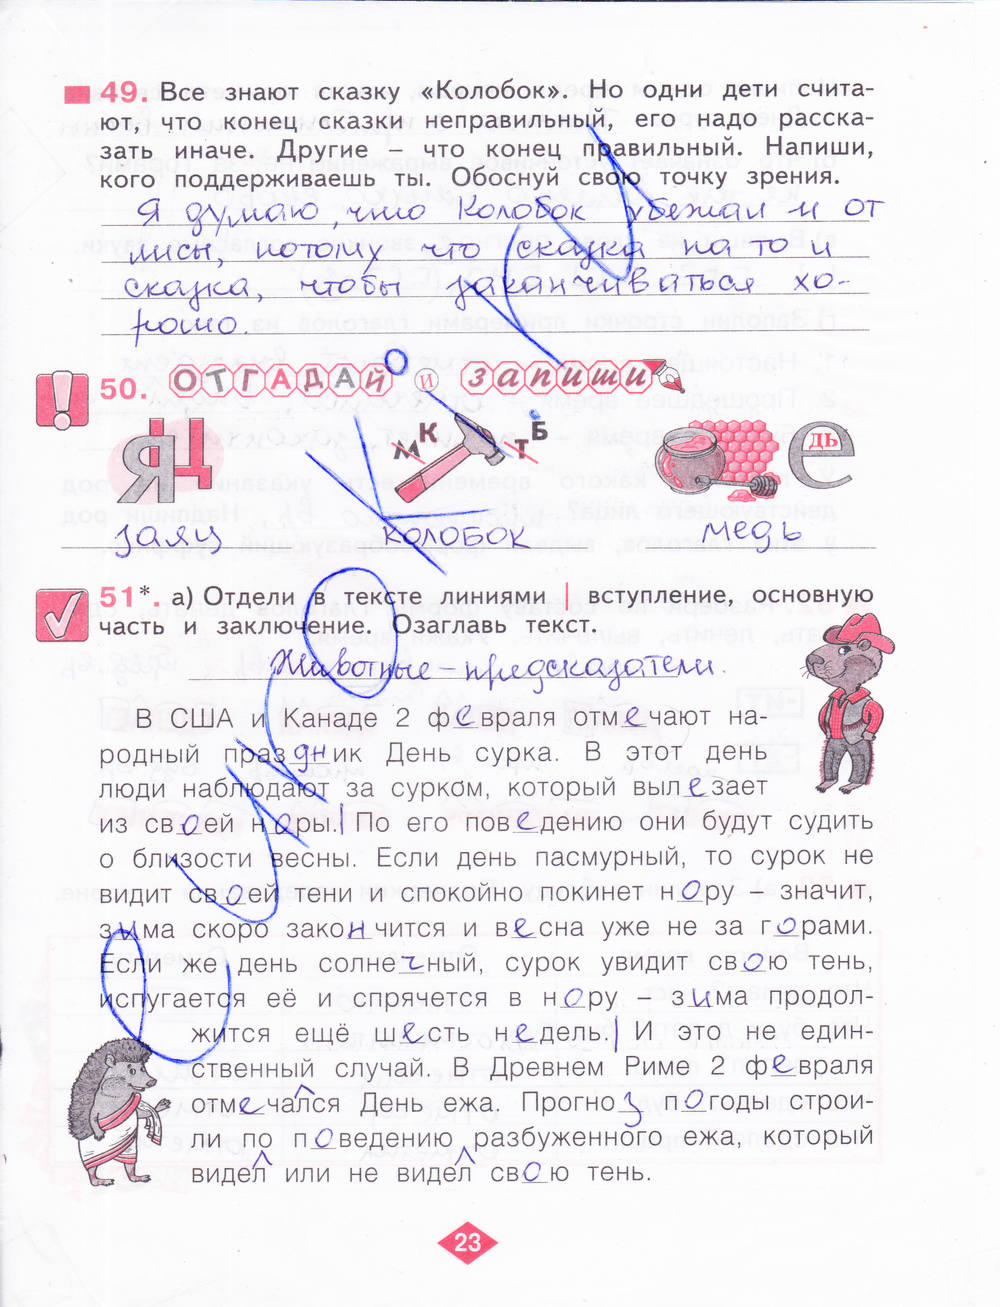 49. Все знают сказку «Колобок». Но одни дети счита-
ют, что конец сказки неправильный, его надо расска-
зать иначе. Другие – что конец правильный. Напиши,
кого поддерживаешь ты. Обоснуй свою точку зрения.
Я думаю, что Колобок убежал и от
лисы, потому что сказка на то и
сказка, чтобы заканчиваться хо-
рошо.
50. ОТГАДАЙ И запиши
ЯЦ М К Т Б е ДЬ
заяц колобок медь
51*. а) Отдели в тексте линиями | вступление, основную
часть и заключение. Озаглавь текст.
Животные – предсказатели.
В США и Канаде 2 февраля отмечают на-
родный праздник День сурка. В этот день
люди наблюдают за сурком, который вылезает
из своей норы.| По его поведению они будут судить
о близости весны. Если день пасмурный, то сурок не
видит своей тени и спокойно покинет нору – значит,
зима скоро закончится и весна уже не за горами.
Если же день солнечный, сурок увидит свою тень,
испугается её и спрячется в нору – зима продол-
жится ещё шесть недель| И это не един-
ственный случай. В Древнем Риме 2 февраля
отмечался День ежа. Прогноз погоды строи-
ли по поведению разбуженного ежа, который
видел или не видел свою тень.
23